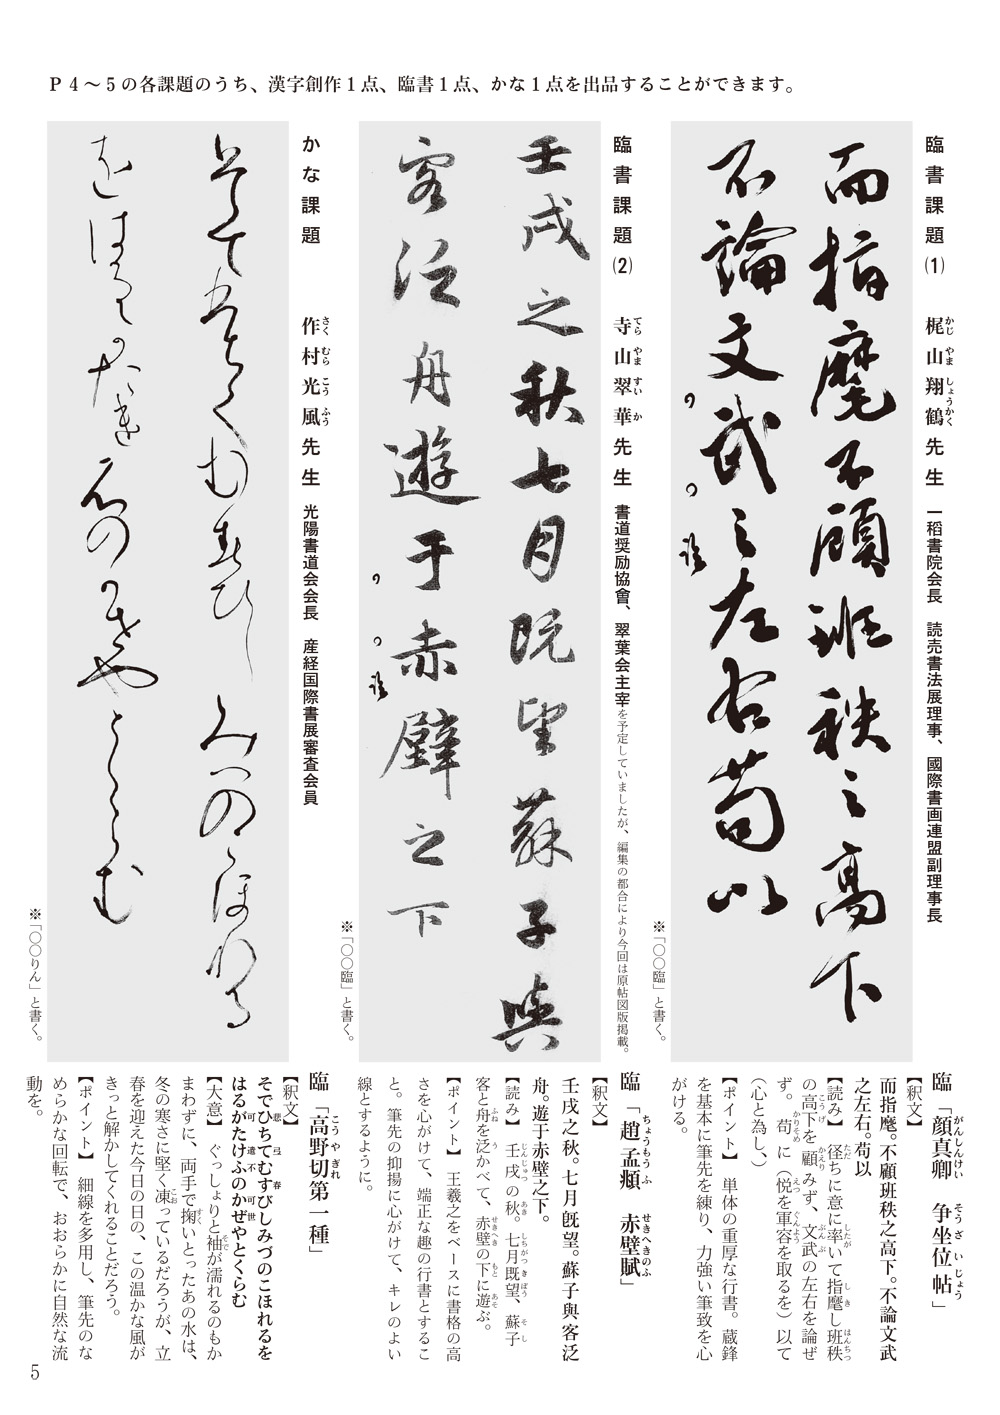 P4～5の各課題のうち、漢字創作1点、臨書1点、かな1点を出品することができます。
臨書課題(1)　梶山翔鶴先生　一稲書院会長　読売書法展理事、國際書画連盟副理事長
かじやましょうかく
而指麾不顧班秩之高下
不論文武之左右苟以
※「〇〇臨」と書く。
臨「顔真卿　争坐位帖」
がんしんけい　そうざいじょう
【釈文】
而指麾。不顧班秩之高下。不論文武
之左右。苟以
【読み】　径ちに意に率いて指麾し班秩
の高下を顧みず、文武の左右を論ぜ
ず。苟に（悦を軍容を取るを）以て
（心と為し、）
【ポイント】　単体の重厚な行書。蔵鋒
を基本に筆先を練り、力強い筆致を心
がける。
臨書課題(2)　寺山翠華先生　書道奨励協會、翠葉会主宰を予定していましたが、編集の都合により今回は原帖図版掲載。
てらやますいか
壬戌之秋七月既望蘇子與
客泛舟遊于赤壁之下
※「〇〇臨」と書く。
臨「趙孟頫　赤壁賦」
ちょうもうふ　せきへきのふ
【釈文】
壬戌之秋。七月既望。蘇子與客泛
舟。遊于赤壁之下。
【読み】　壬戌の秋。七月既望、蘇子
客と舟を泛かべて、赤壁の下に遊ぶ。
【ポイント】　王羲之をベースに書格の高
さを心がけて、端正な趣の行書とするこ
と。筆先の抑揚に心がけて、キレのよい
線とするように。
かな課題　作村光風先生　光陽書道会会長　産経国際書展審査会員
さくむらこうふう
※「〇〇りん」と書く。
臨「高野切第一種」
こうやぎれ
【釈文】
そでひちてむすびしみづのこほれるを
はるがたけふのかぜやとくらむ
【大意】　ぐっしょりと袖が濡れるのもか
まわずに、両手で掬いとったあの水は、
冬の寒さに堅く凍っているだろうが、立
春を迎えた今日の日の、この温かな風が
きっと解かしてくれることだろう。
【ポイント】　細線を多用し、筆先のな
めらかな回転で、おおらかに自然な流
動を。
5